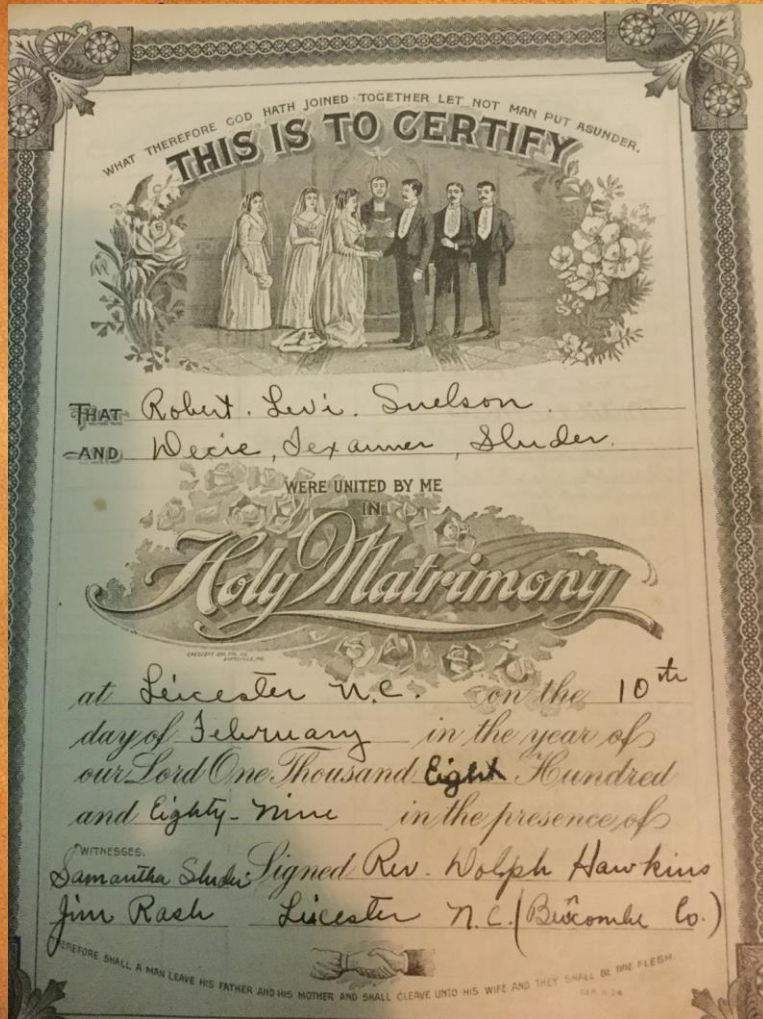 WHAT THEREFORE GOD HATH JOINED TOGETHER LET NOT MAN PUT ASUNDER.
THIS IS TO CERTIFY
THAT Robert. Levi. Snelson.
AND Decie, Texanner, Sluder.
WERE UNITED BY ME
IN
Holy Matrimony
at Leicester N.C. on the 10th
day of February in the year of
our Lord One Thousand Eight Hundred
and Eighty-nine in the presence of
WITNESSES.
Samantha Sluder Signed Rev. Dolph Hawkins
Jim Rash Leicester N.C. (Buncombe Co.)
THEREFORE SHALL A MAN LEAVE HIS FATHER AND HIS MOTHER AND SHALL CLEAVE UNTO HIS WIFE AND THEY SHALL BE ONE FLESH.